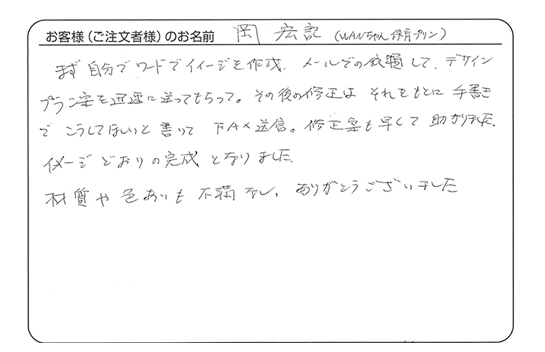 お客様(ご注文者様)のお名前 岡 宏記 (WANちゃん保育プリン)
まず自分でワードでイメージを作成、メールでの依頼して、デザイン
プラン案を迅速に送ってもらって。その後の修正は それをもとに 手書き
で こうしてほしいと 書いて FAX送信。修正案も早くて 助かりました。
イメージ どおりの完成 となりました。
材質や 色あいも 不満なし。ありがとうございました